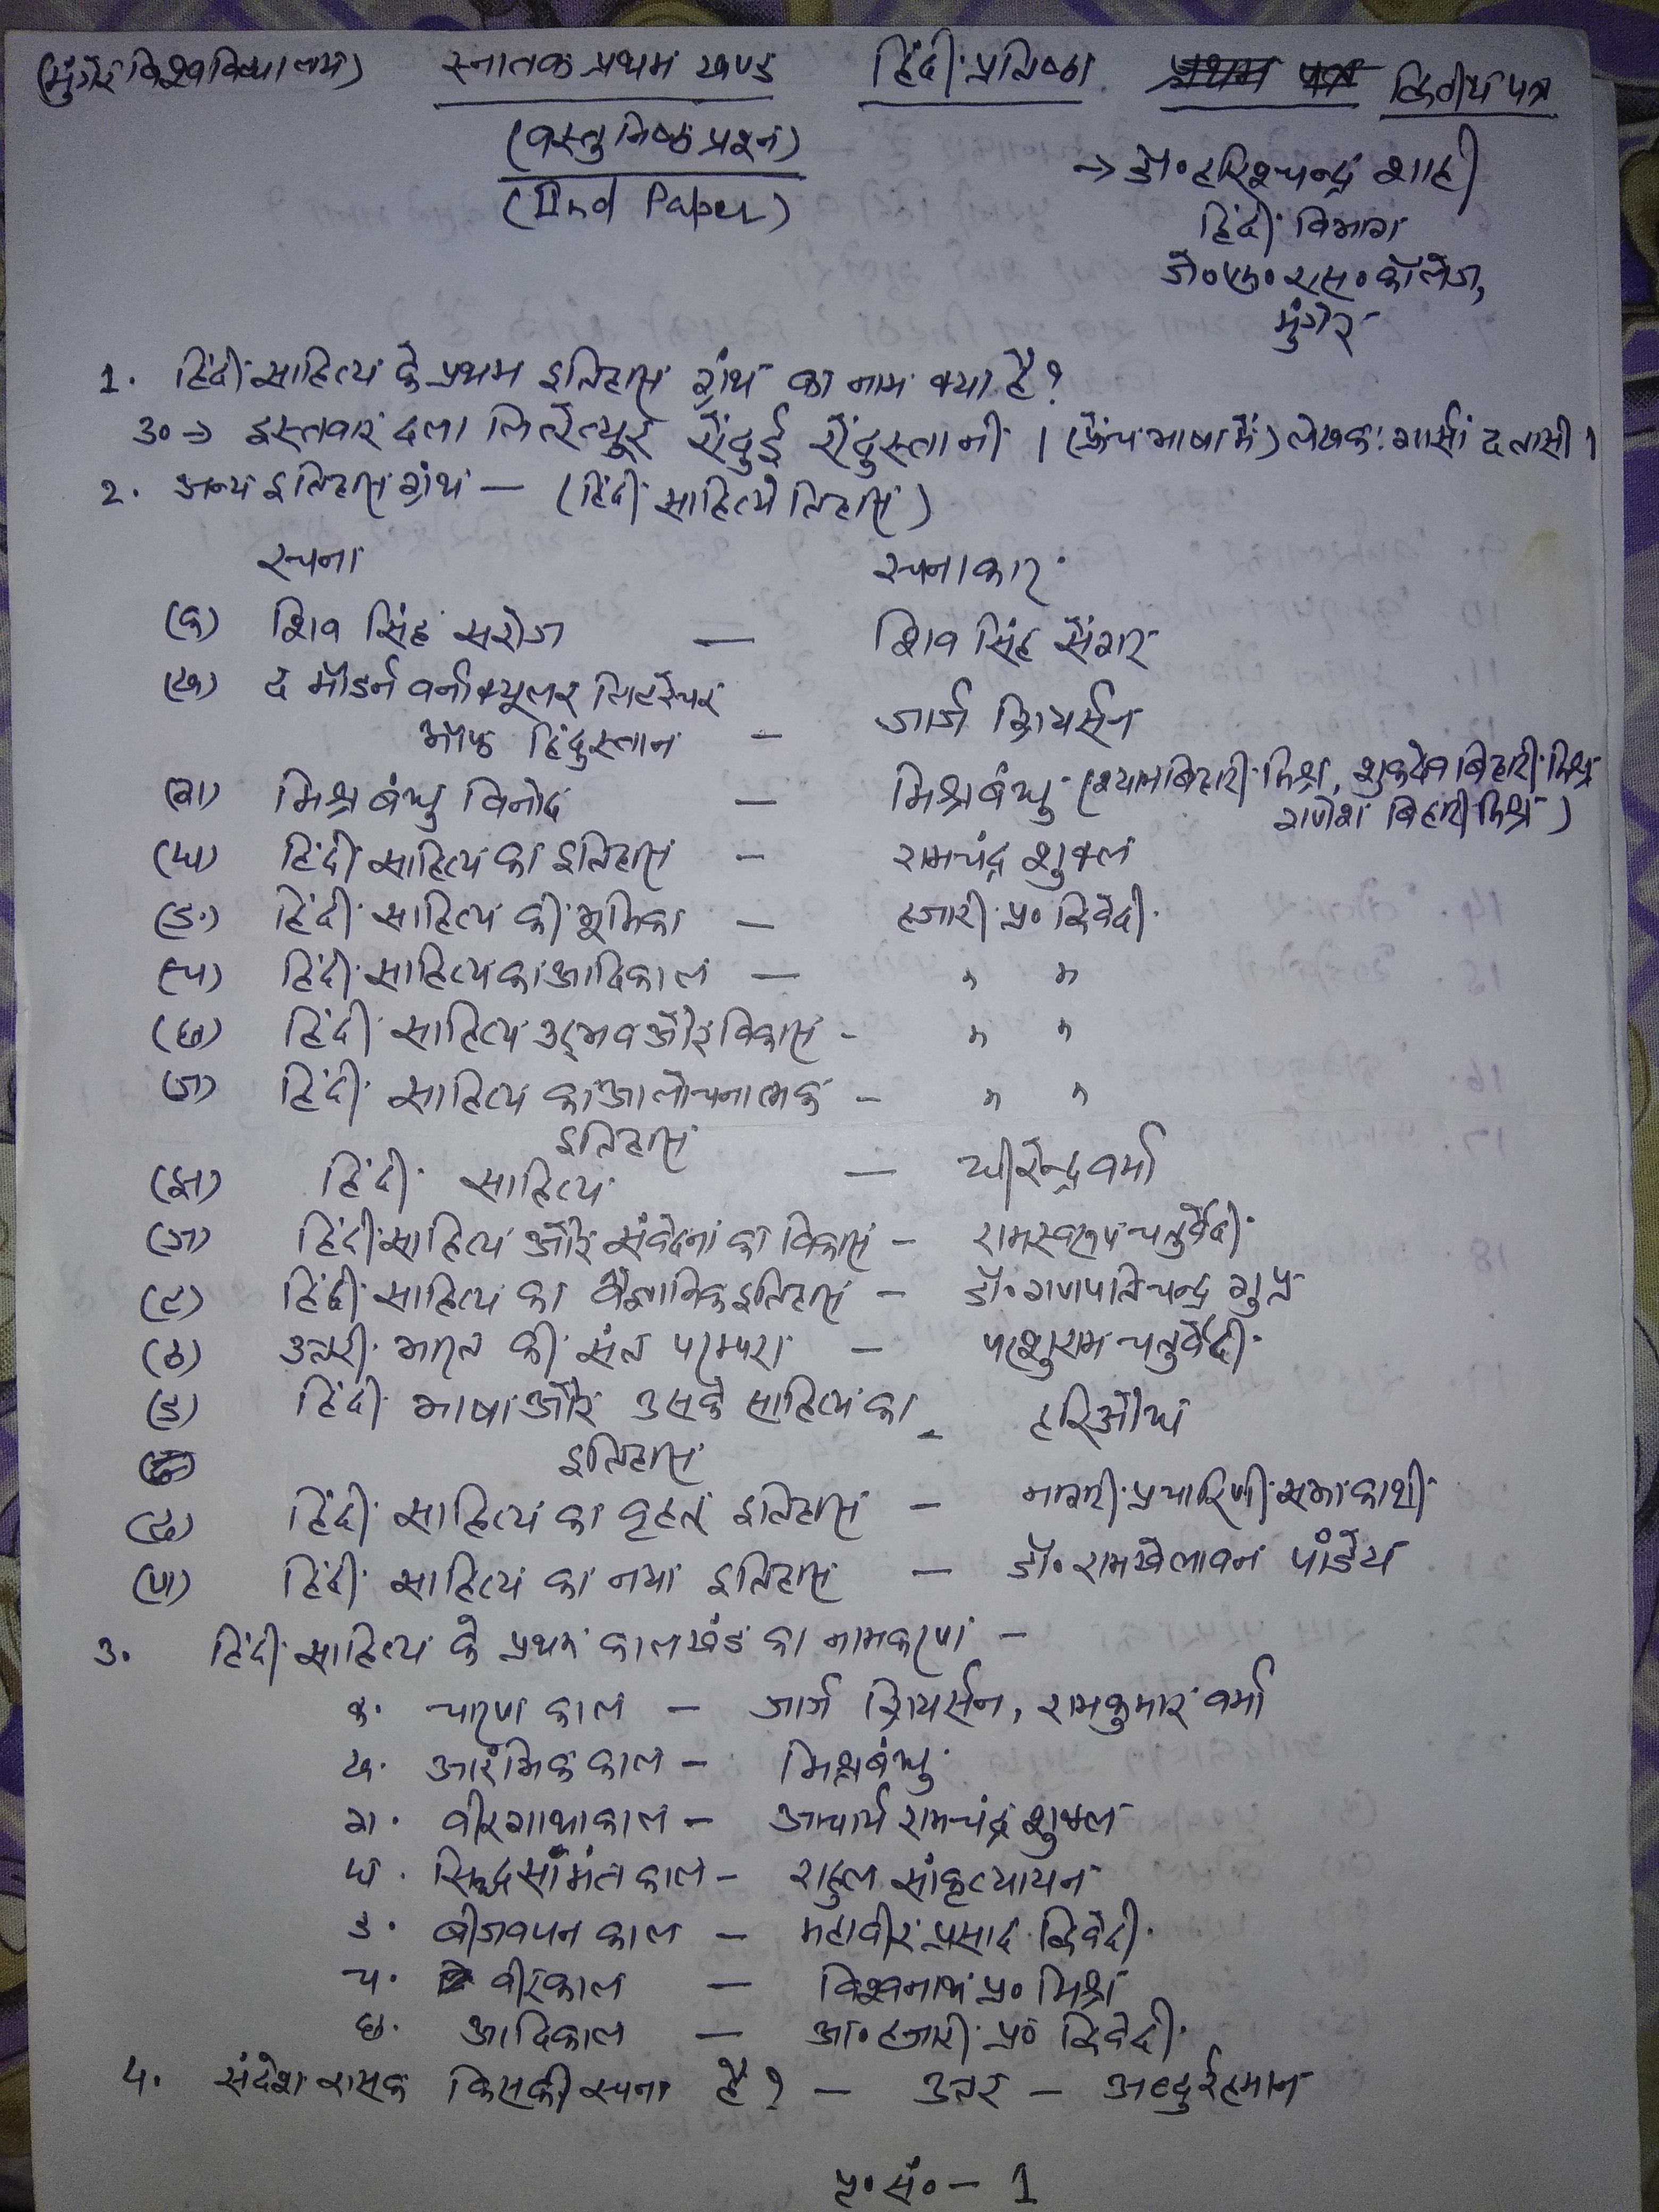 (मुंगेर विश्वविद्यालय) स्नातक प्रथम खण्ड हिंदी प्रतिष्ठा प्रथम पत्र द्वितीय पत्र
(वस्तुनिष्ठ प्रश्न)
(IInd Paper)
→ डॉ० हरिश्चन्द्र शाही
हिंदी विभाग
जे०एम०एस० कॉलेज,
मुंगेर
1. हिंदी साहित्य के प्रथम इतिहास ग्रंथ का नाम क्या है?
उ०→ इस्तवार दला लितरेत्युर ऐंदुई ऐंदुस्तानी । (फ्रेंच भाषा में) लेखक: गार्सां द तासी ।
2. अन्य इतिहास ग्रंथ — (हिंदी साहित्येतिहास)
रचना रचनाकार
(क) शिव सिंह सरोज — शिव सिंह सेंगर
(ख) द मॉडर्न वर्नाक्यूलर लिटरेचर
ऑफ हिंदुस्तान — जार्ज ग्रियर्सन
(ग) मिश्रबंधु विनोद — मिश्रबंधु (श्यामबिहारी मिश्र, शुकदेव बिहारी मिश्र
गणेश बिहारी मिश्र)
(घ) हिंदी साहित्य का इतिहास — रामचंद्र शुक्ल
(ङ) हिंदी साहित्य की भूमिका — हजारी प्र० द्विवेदी
(च) हिंदी साहित्य का आदिकाल — " "
(छ) हिंदी साहित्य उद्भव और विकास - " "
(ज) हिंदी साहित्य का आलोचनात्मक - " "
इतिहास
(झ) हिंदी साहित्य — धीरेन्द्र वर्मा
(ञ) हिंदी साहित्य और संवेदना का विकास - रामस्वरूप चतुर्वेदी
(ट) हिंदी साहित्य का वैज्ञानिक इतिहास - डॉ० गणपतिचन्द्र गुप्त
(ठ) उत्तरी भारत की संत परम्परा — परशुराम चतुर्वेदी
(ड) हिंदी भाषा और उसके साहित्य का - हरिऔध
इतिहास
(ढ) हिंदी साहित्य का वृहत् इतिहास — नागरी प्रचारिणी सभा काशी
(ण) हिंदी साहित्य का नया इतिहास — डॉ० रामखेलावन पांडेय
3. हिंदी साहित्य के प्रथम कालखंड का नामकरण —
क. चारण काल — जार्ज ग्रियर्सन, रामकुमार वर्मा
ख. आरंभिक काल — मिश्रबंधु
ग. वीरगाथा काल — आचार्य रामचंद्र शुक्ल
घ. सिद्ध सामंत काल - राहुल सांकृत्यायन
ङ. बीजवपन काल — महावीर प्रसाद द्विवेदी
च. वीरकाल — विश्वनाथ प्र० मिश्र
छ. आदिकाल — आ० हजारी प्र० द्विवेदी
4. संदेश रासक किसकी रचना है? — उत्तर — अब्दुर्रहमान
पृ० सं० — 1